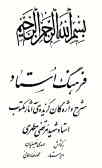 بسم الله الرحمن الرحیم
فرهنگ استاد
شرح واژه‌گان گزیده‌ی آثار مکتوب
استاد شهید مرتضی مطهری